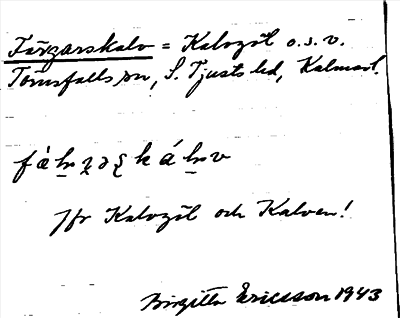 Färgarskalv = Kalvgöl o.s.v.
Törnsfalls sn, S. Tjusts hd, Kalmar l.
Jfr Kalvgöl och Kalven!
Birgitta Ericsson 1943